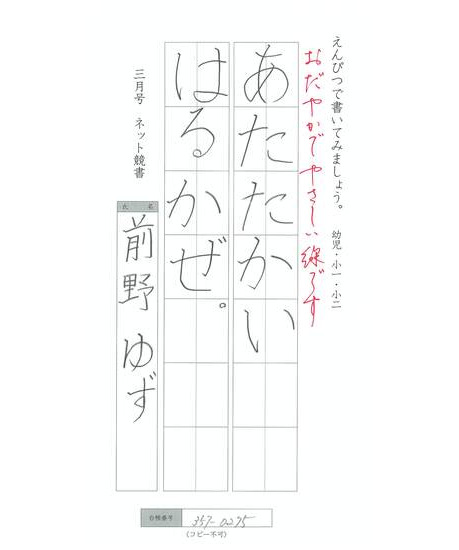 えんぴつで書いてみましょう。 幼児・小一・小二
おだやかでやさしい線です
あたたかい
はるかぜ。
三月号 ネット競書
氏名
前野 ゆず
台帳番号 357-0275
(コピー不可)